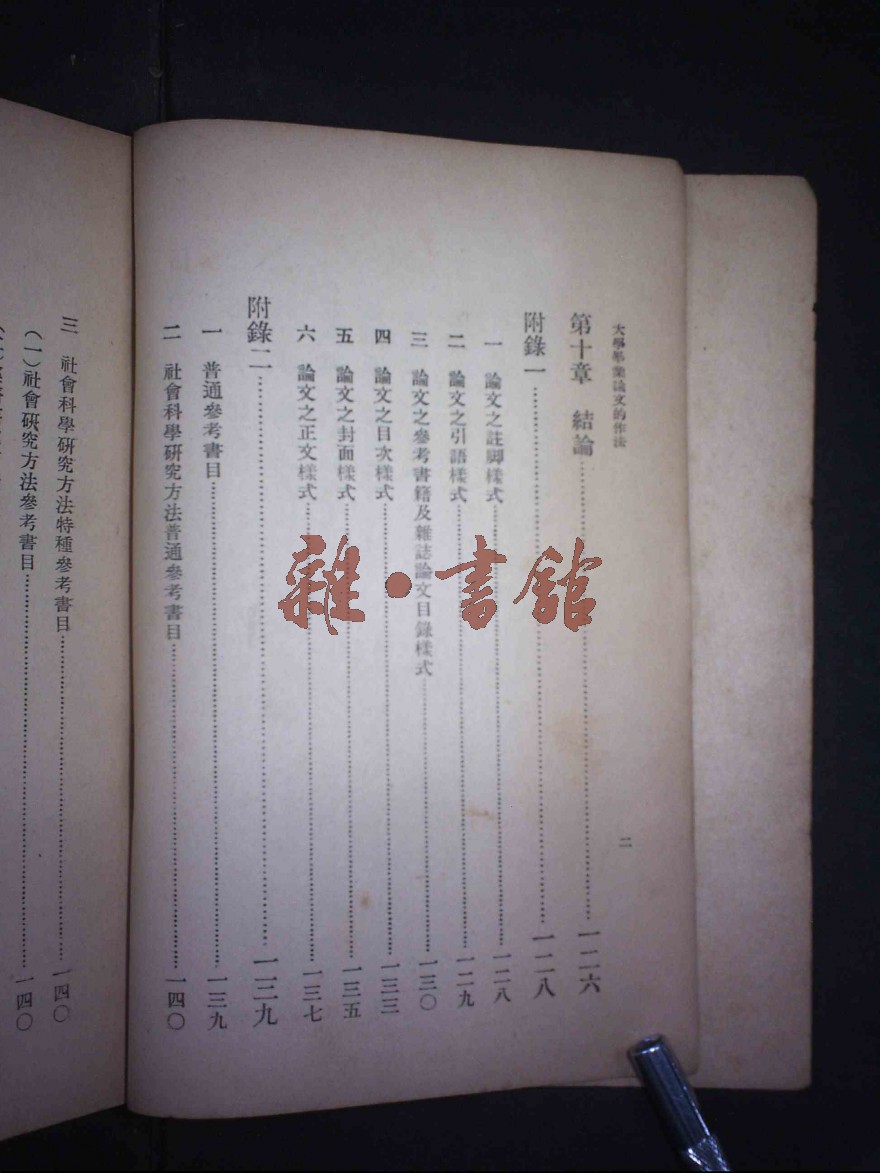 大學畢業論文的作法
二
第十章　結論……一二六
附錄一……一二八
一　論文之註脚樣式……一二八
二　論文之引語樣式……一二九
三　論文之參考書籍及雜誌論文目錄樣式……一三〇
四　論文之目次樣式……一三三
五　論文之封面樣式……一三五
六　論文之正文樣式……一三七
附錄二……一三九
一　普通參考書目……一三九
二　社會科學研究方法普通參考書目……一四〇
三　社會科學研究方法特種參考書目……一四〇
（一）社會研究方法參考書目……一四〇
雜·書館